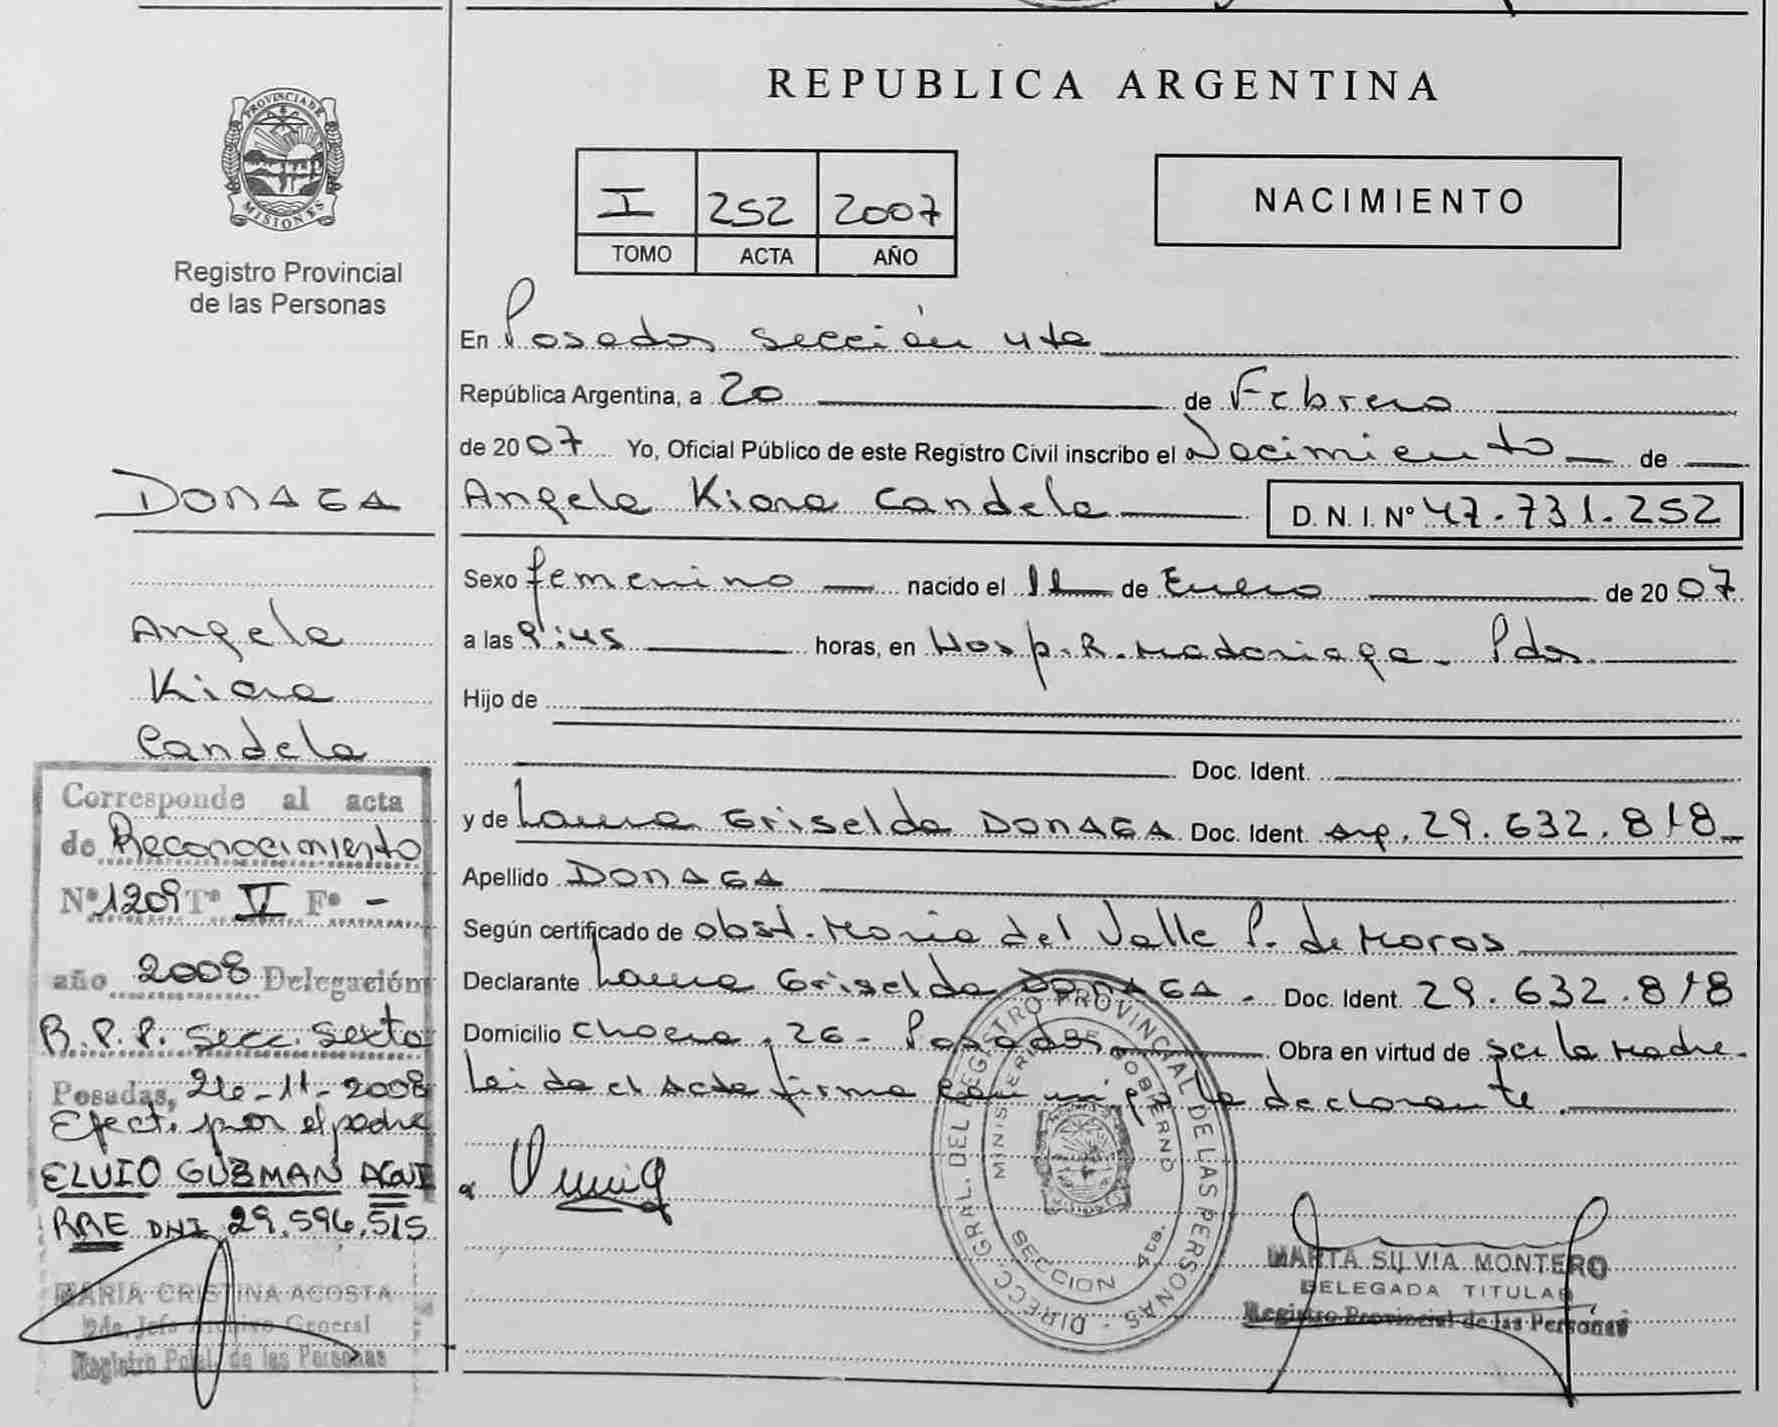 PROVINCIA DE
MISIONES
Registro Provincial
de las Personas
DONAGA
Angela
Kiara
Candela
Corresponde al acta
de Reconocimiento
Nº 1209 Tº V Fº -
año 2008 Delegación
R.P.P. Secc. Sexta
Posadas, 26-11-2008
Efect. por el padre
ELVIO GUZMAN AGUI
RRE DNI 29.596.515
MARIA CRISTINA ACOSTA
2da. Jefe Archivo General
Registro Pcial. de las Personas
REPUBLICA ARGENTINA
I 252 2007
TOMO ACTA AÑO
NACIMIENTO
En Posadas sección 4ta
República Argentina, a 20 de Febrero
de 2007 Yo, Oficial Público de este Registro Civil inscribo el Nacimiento de
Angela Kiara Candela D. N. I. Nº 47.731.252
Sexo femenino nacido el 11 de Enero de 2007
a las 9:45 horas, en Hosp. R. Madariaga - Pdas.
Hijo de
Doc. Ident.
y de Laura Griselda DONAGA Doc. Ident. Arg. 29.632.818
Apellido DONAGA
Según certificado de obst. Maria del Valle P. de Moras
Declarante Laura Griselda DONAGA. Doc. Ident. 29.632.818
Domicilio Chacra 26 - Posadas Obra en virtud de ser la Madre.
Leida el Acta firma con mi go la declarante.
DIRECC. GRAL. DEL REGISTRO PROVINCIAL DE LAS PERSONAS
MINISTERIO DE GOBIERNO
SECCION 4ta.
MARTA SILVIA MONTERO
DELEGADA TITULAR
Registro Provincial de las Personas